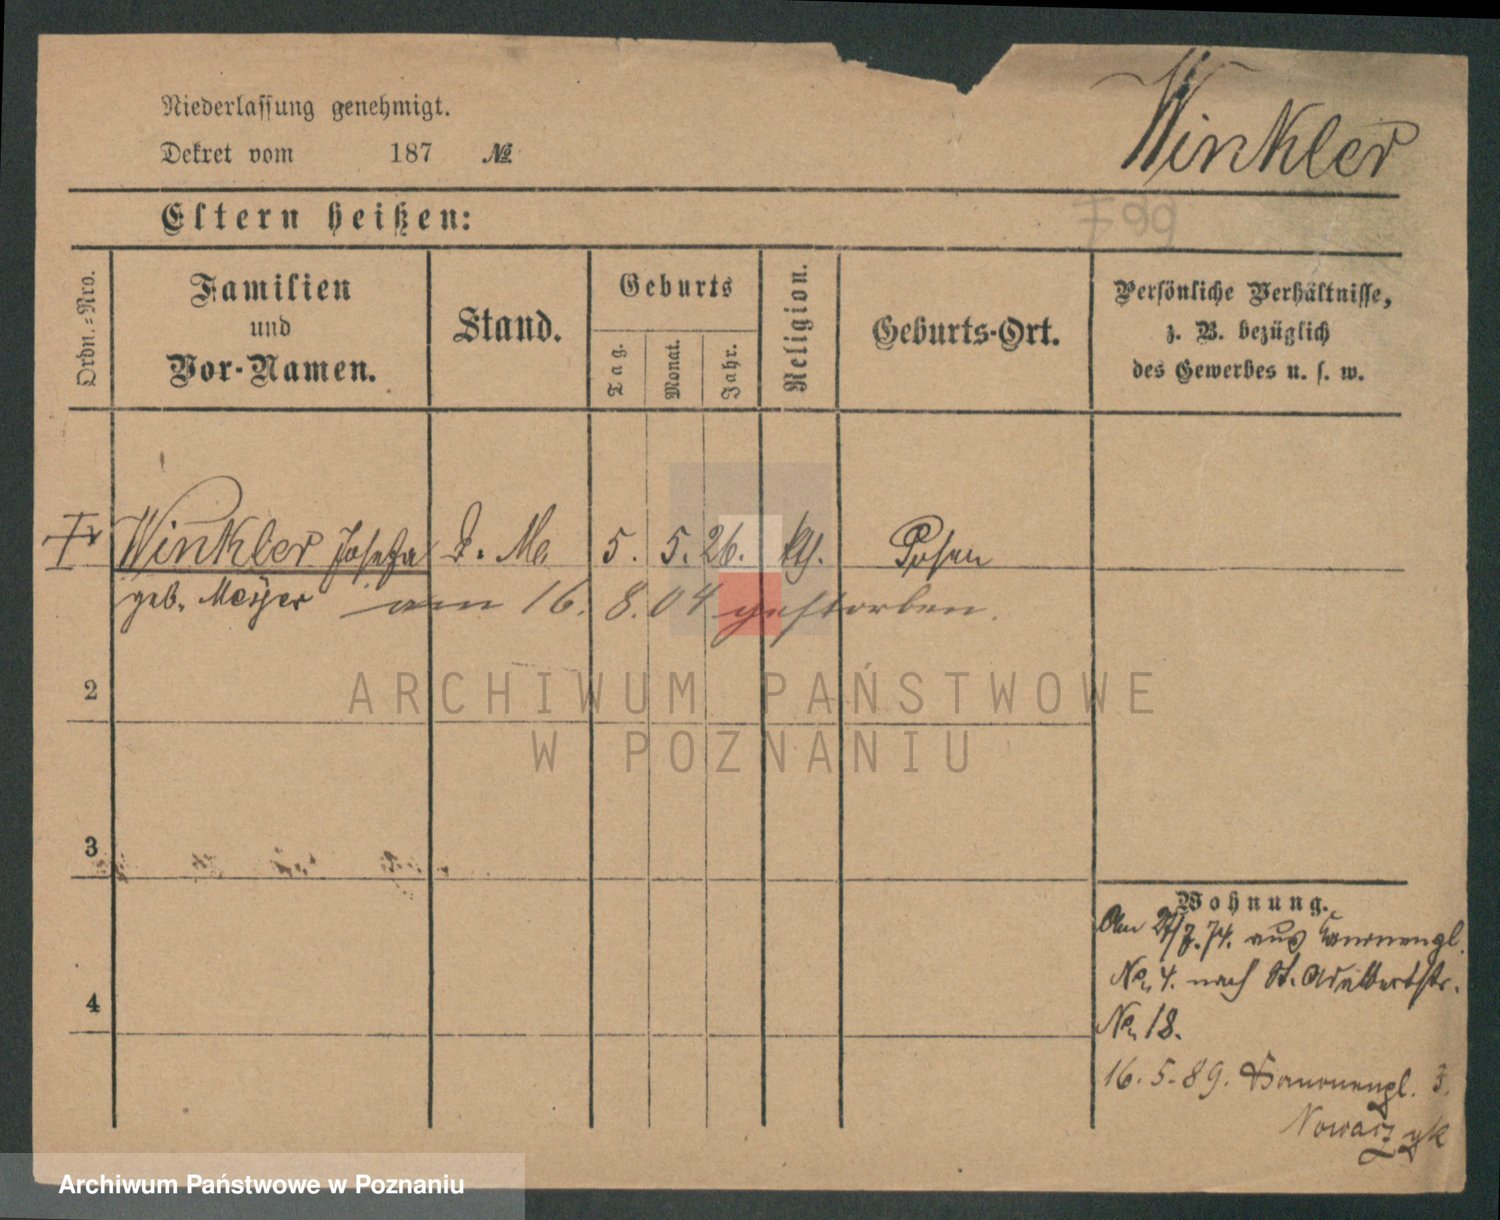 Niederlassung genehmigt.
Winkler
Dekret vom 187 №
Eltern heißen:
Ordn.-Nro.
Familien
und
Vor-Namen.
Stand.
Geburts
Tag.
Monat.
Jahr.
Religion.
Geburts-Ort.
Persönliche Verhältnisse,
z. B. bezüglich
des Gewerbes u. s. w.
Winkler Josefa 5. 5. 26. kth. Posen
geb. Meyer am 16. 8. 04 gestorben.
2
ARCHIWUM PAŃSTWOWE
W POZNANIU
3
Wohnung.
Am 74. aus
No. 4. nach St. Adalbertstr.
4
No. 18.
16. 5. 89. 3.
Nowaczyk
Archiwum Państwowe w Poznaniu